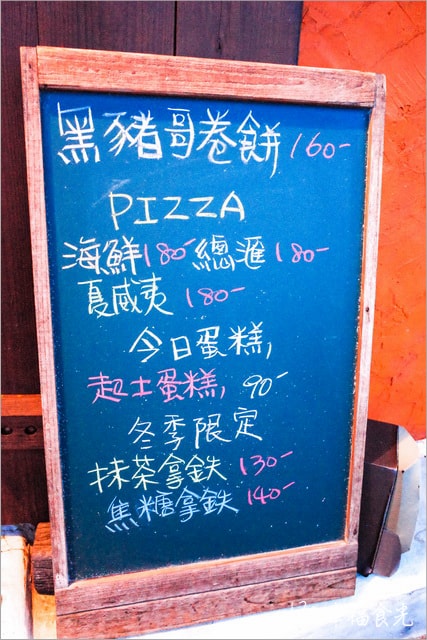 黑豬哥卷餅 160-
PIZZA
海鮮180- 總滙180-
夏威夷 180-
今日蛋糕,
起士蛋糕, 90-
冬季限定
抹茶拿鉄 130-
焦糖拿鉄 140-